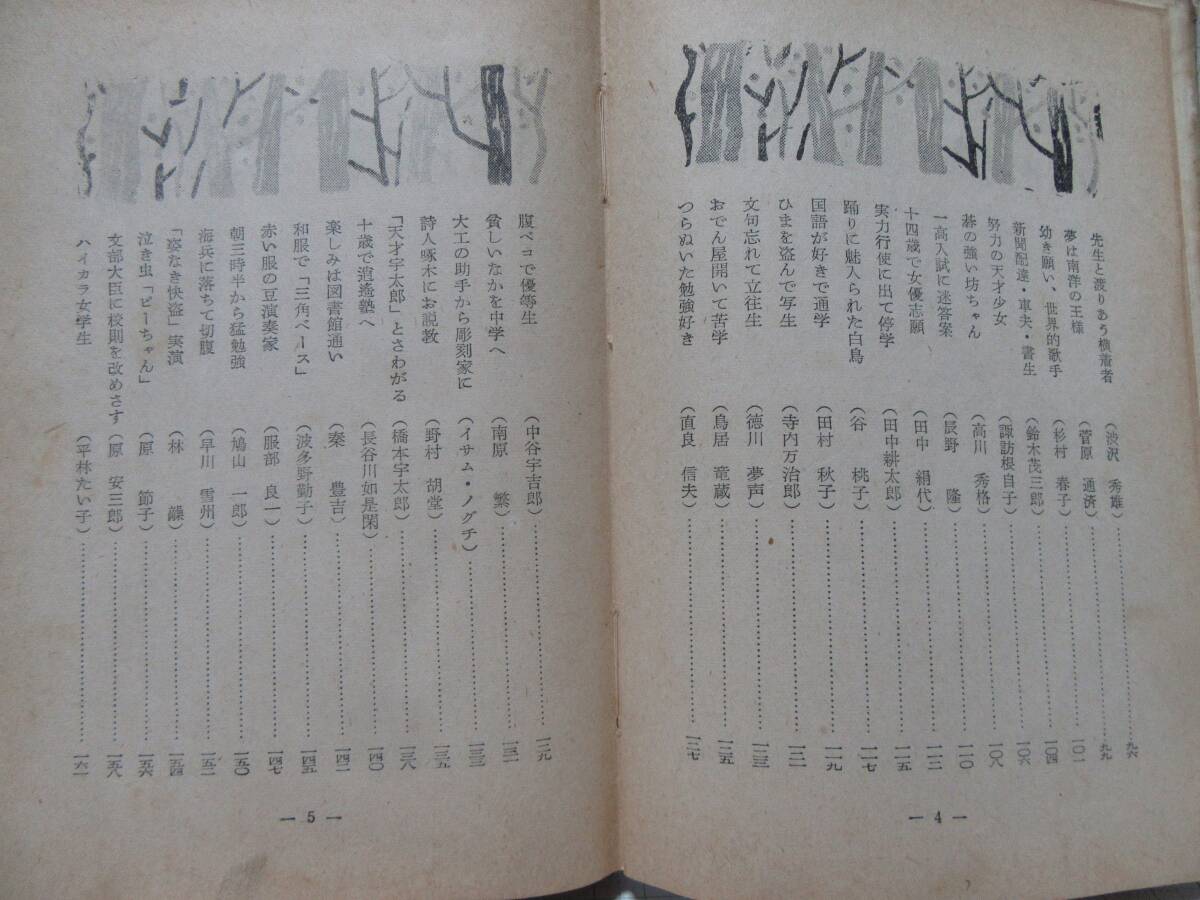 先生と渡りあう横着者 (渋沢 秀雄)……九六
夢は南洋の王様 (菅原 通済)……九九
幼き願い、世界的歌手 (杉村 春子)……一〇一
新聞配達・車夫・書生 (鈴木茂三郎)……一〇四
努力の天才少女 (諏訪根自子)……一〇六
碁の強い坊ちゃん (高川 秀格)……一〇八
一高入試に迷答案 (辰野 隆)……一一〇
十四歳で女優志願 (田中 絹代)……一一二
実力行使に出て停学 (田中耕太郎)……一一五
踊りに魅入られた白鳥 (谷 桃子)……一一七
国語が好きで通学 (田村 秋子)……一一九
ひまを盗んで写生 (寺内万治郎)……一二一
文句忘れて立往生 (徳川 夢声)……一二三
おでん屋開いて苦学 (鳥居 竜蔵)……一二五
つらぬいた勉強好き (直良 信夫)……一二七
— 4 —
腹ペコで優等生 (中谷宇吉郎)……一二九
貧しいなかを中学へ (南原 繁)……一三一
大工の助手から彫刻家に (イサム・ノグチ)……一三三
詩人啄木にお説教 (野村 胡堂)……一三五
「天才宇太郎」とさわがる (橋本宇太郎)……一三八
十歳で逍遙塾へ (長谷川如是閑)……一四〇
楽しみは図書館通い (秦 豊吉)……一四二
和服で「三角ベース」 (波多野勤子)……一四五
赤い服の豆演奏家 (服部 良一)……一四七
朝三時半から猛勉強 (鳩山 一郎)……一五〇
海兵に落ちて切腹 (早川 雪州)……一五二
「姿なき快盗」実演 (林 髞)……一五四
泣き虫「ピーちゃん」 (原 節子)……一五六
文部大臣に校則を改めさす (原 安三郎)……一五八
ハイカラ女学生 (平林たい子)……一六一
— 5 —